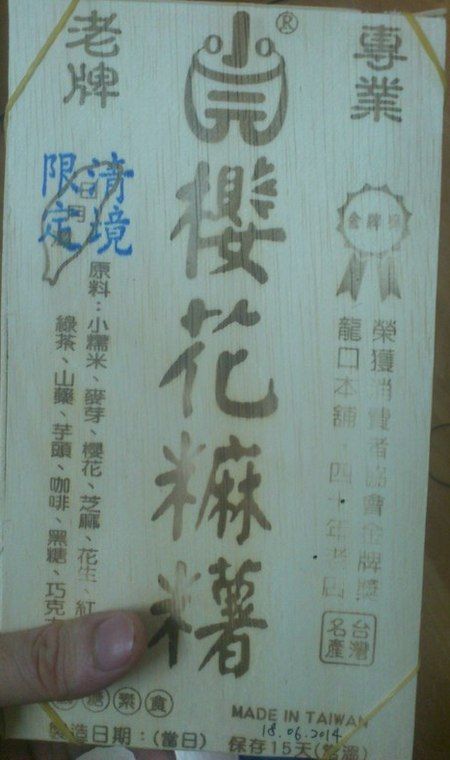 專業
老牌
®
清境
限定
金牌獎
榮獲消費者協會金牌獎
龍口本舖．四十年老店
台灣
名產
櫻花麻糬
原料：小糯米、麥芽、櫻花、芝麻、花生、紅
綠茶、山藥、芋頭、咖啡、黑糖、巧克
糖素食
MADE IN TAIWAN
18.06.2014
製造日期：(當日) 保存15天(常溫)